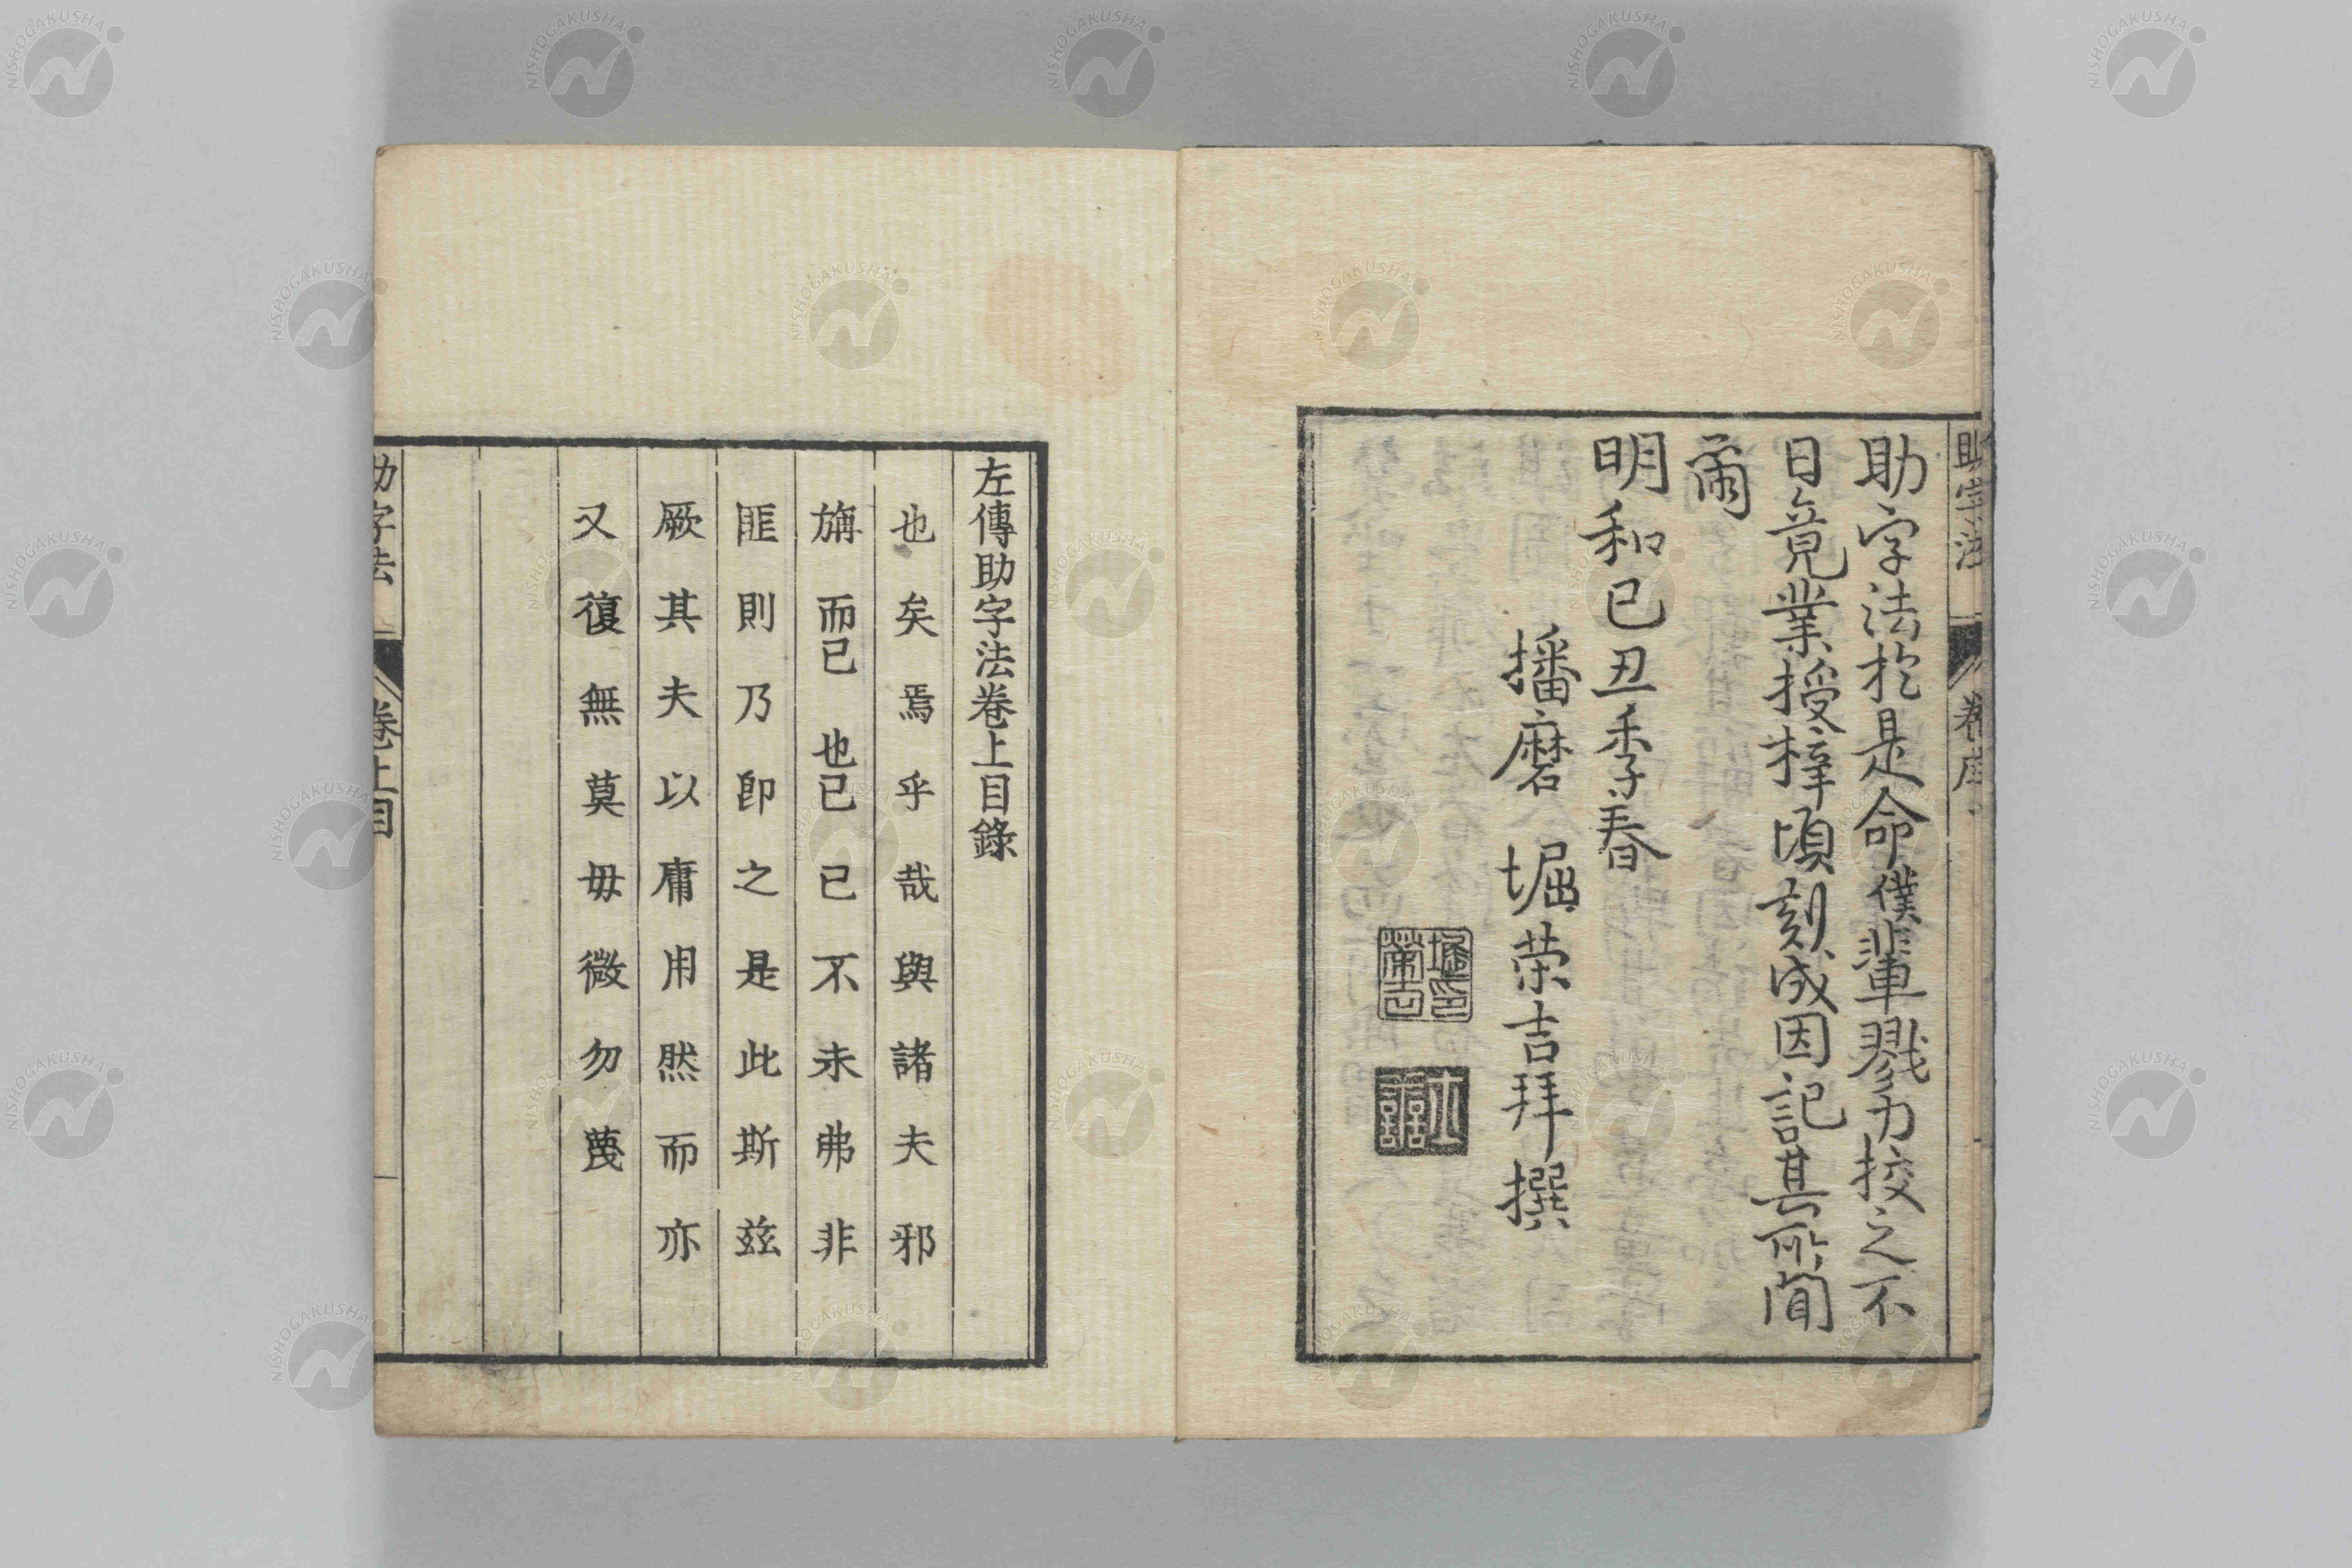 助字法於是命僕輩戮力挍之不
日竟業授梓頃刻成因記其所聞
爾
明和已丑季春
播磨 堀荣吉拜撰
助字法 卷序
左傳助字法卷上目錄
也 矣 焉 乎 哉 與 諸 夫 邪
旃 而已 也已 已 不 未 弗 非
匪 則 乃 卽 之 是 此 斯 茲
厥 其 夫 以 庸 用 然 而 亦
又 復 無 莫 毋 微 勿 蔑
助字法 卷上目
NISHOGAKUSHA